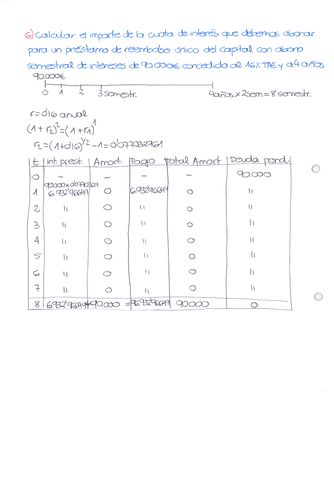 ⑥ Calcular el importe de la cuota de interés que debemos abonar
para un préstamo de reembolso único del capital con abono
semestral de intereses de 90.000€ concedido al 16% TAE y a 4 años
90.000€
0 1 2 3 semestr. 4 años x 2 sem = 8 semestr.
r = 0'16 anual
(1 + r₂)² = (1 + r₁)¹
r₂ = (1+0'16)^1/2 - 1 = 0'077032961
t | Int. prest | Amort. | Pago | Total Amort | Deuda pend
0 | - | - | - | - | 90.000
90.000 x 0'0770329
1 | 6.932'96649 | 0 | 6.932'96649 | 0 | "
2 | " | 0 | " | 0 | "
3 | " | 0 | " | 0 | "
4 | " | 0 | " | 0 | "
5 | " | 0 | " | 0 | "
6 | " | 0 | " | 0 | "
7 | " | 0 | " | 0 | "
8 | 6.932'96649 + 90.000 = 96.932'96649 | 90.000 | 0